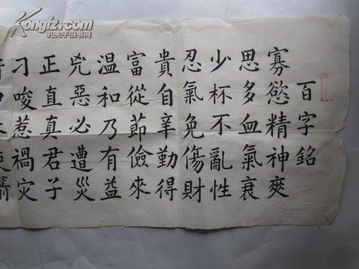 Kongfz.com
孔夫子旧书网
百字銘
寡慾精神爽
思多血氣衰
少杯不亂性
忍氣免傷財
貴自辛勤得
富從節儉來
温和乃有益
兇惡必遭災
正直真君子
刁唆惹禍灾